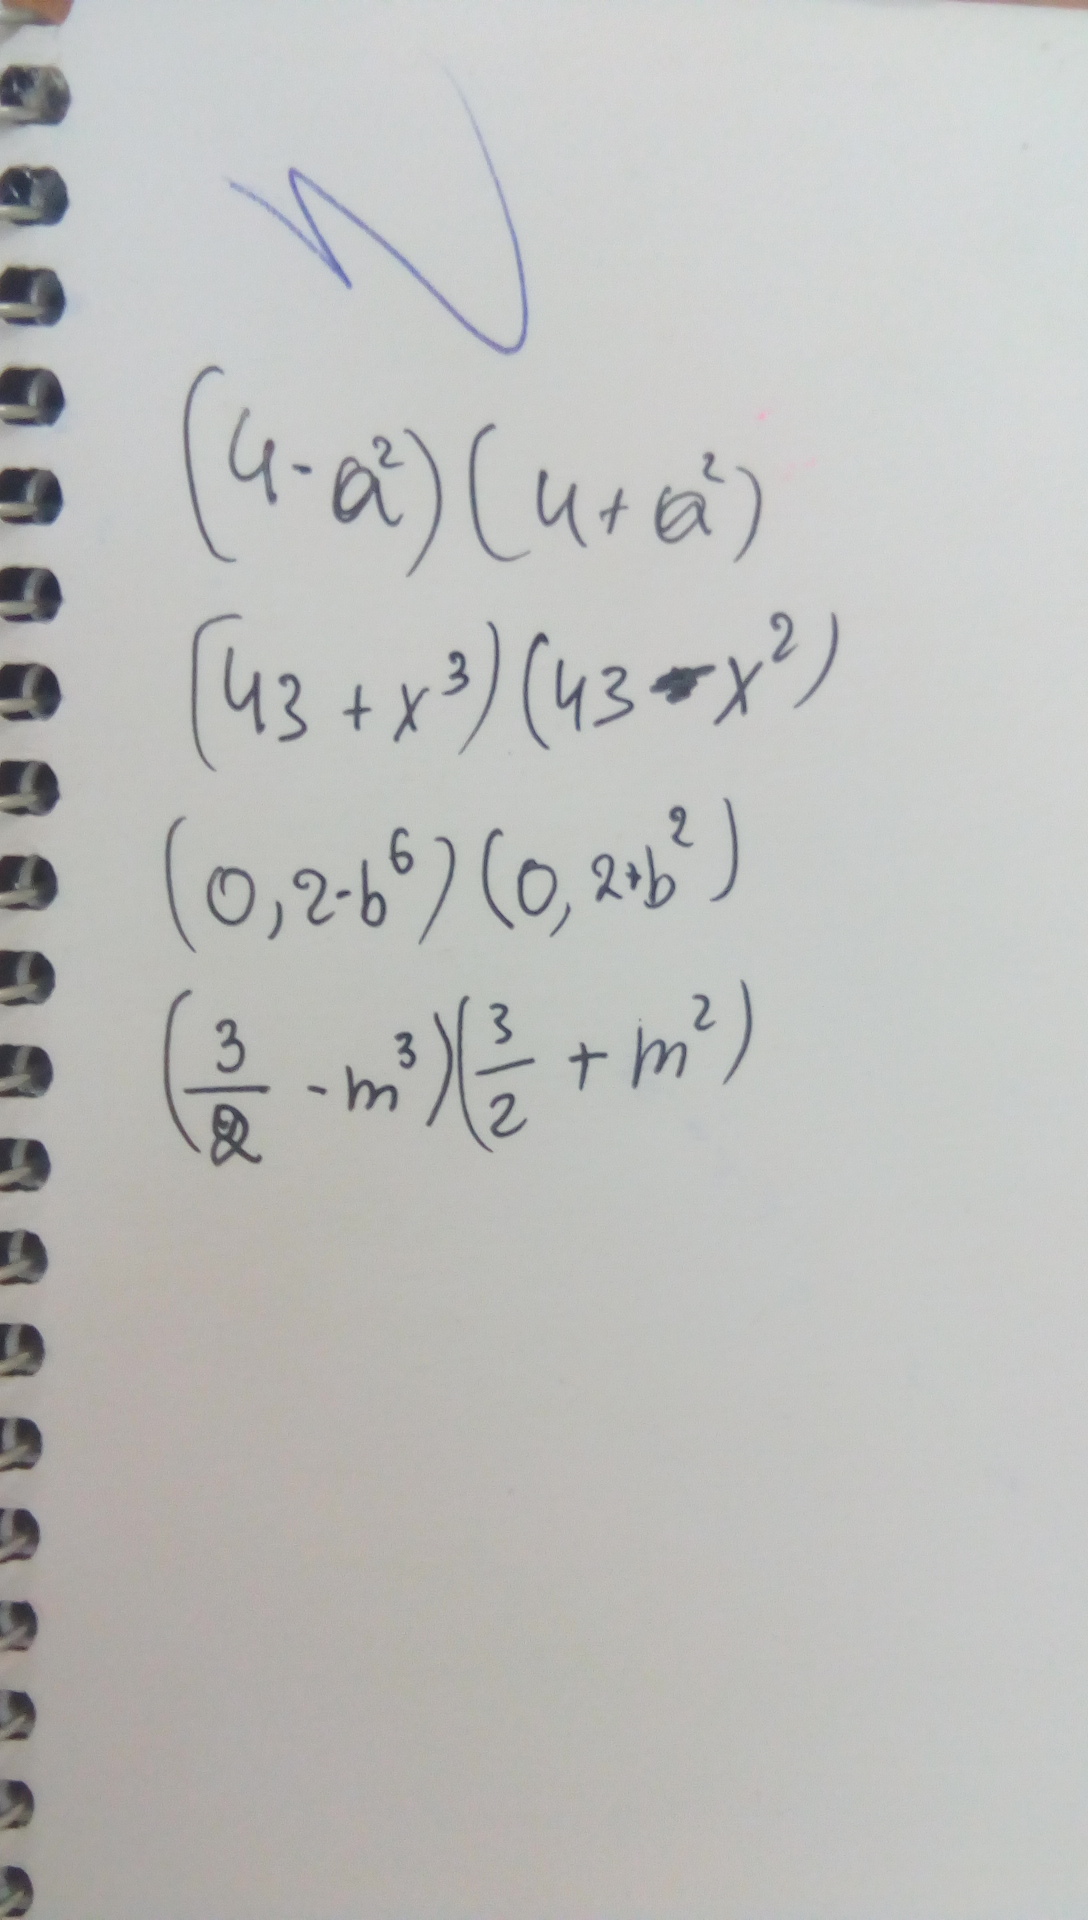 (4-a²)(4+a²)
(43+x³)(43-x²)
(0,2-b⁶)(0,2+b²)
(3/2-m³)(3/2+m²)